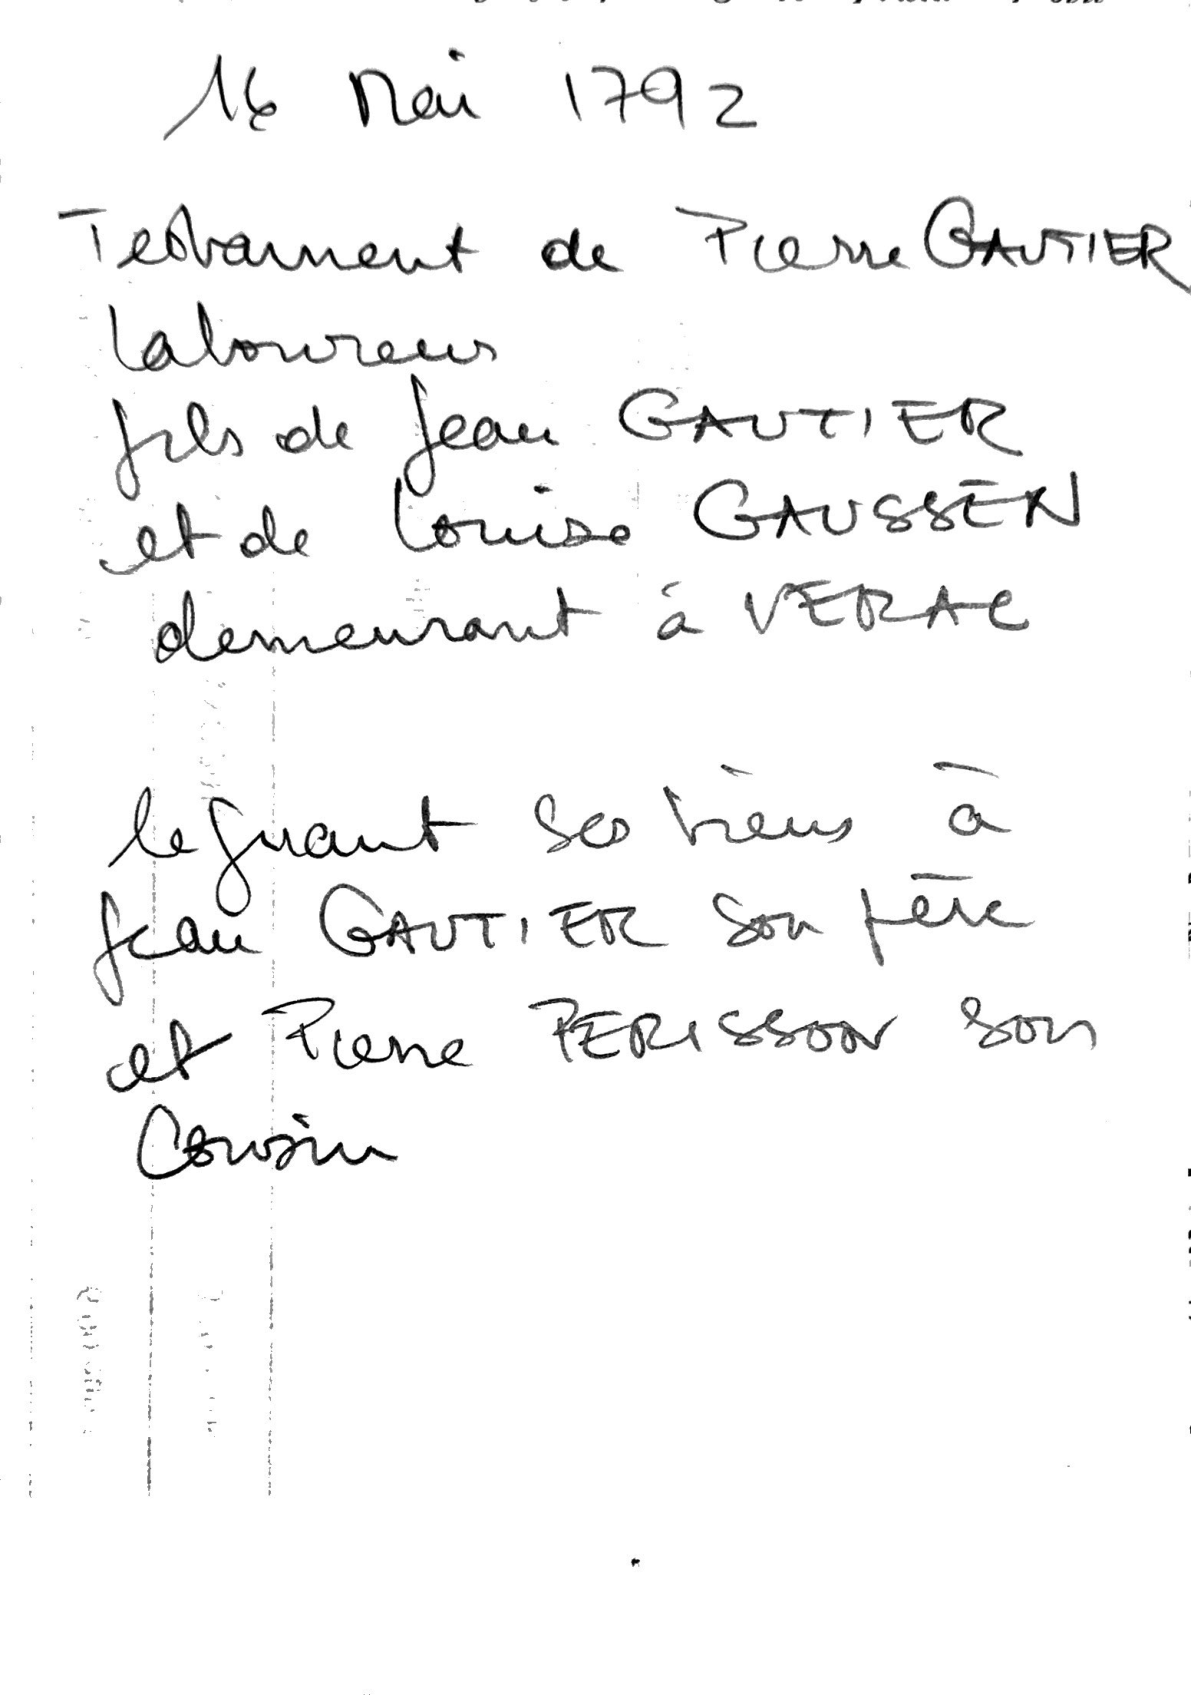 16 Mai 1792
Testament de Pierre GAUTIER
laboureur
fils de Jean GAUTIER
et de Louise GAUSSEN
demeurant à VERAC
leguant ses biens à
Jean GAUTIER son père
et Pierre PERISSON son
Cousin